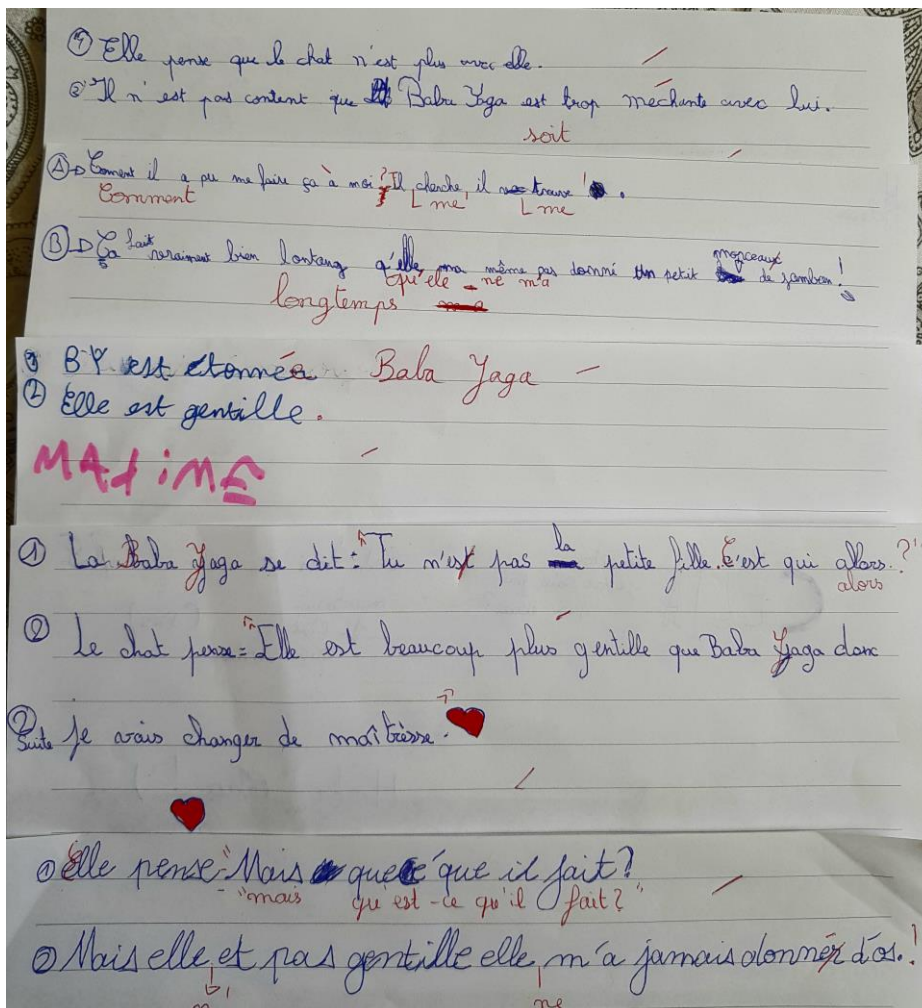 ① Elle pense que le chat n'est plus avec elle.
② Il n'est pas content que Baba Yaga est trop méchante avec lui.
soit
Ⓐ Coment il a pu me faire ça à moi ? Il cherche, il trouve.
Comment me me
Ⓑ Ça fait vraiment bien lontang q'elle ma même pas donné un petit morceaux de jambon !
qu'ele ne m'a
longtemps
① B.Y. est étonnée Baba Yaga
② Elle est gentille.
MAXIME
① La Baba Yaga se dit : "Tu n'est pas la petite fille. C'est qui alors ?"
alors
② Le chat pense : "Elle est beaucoup plus gentille que Baba Yaga donc
② Suite je vais changer de maîtresse."
① Elle pense : "Mais que c'que il fait ?
"mais qu'est-ce qu'il fait ?"
② Mais elle et pas gentille elle m'a jamais donner d'os. !
n' ne